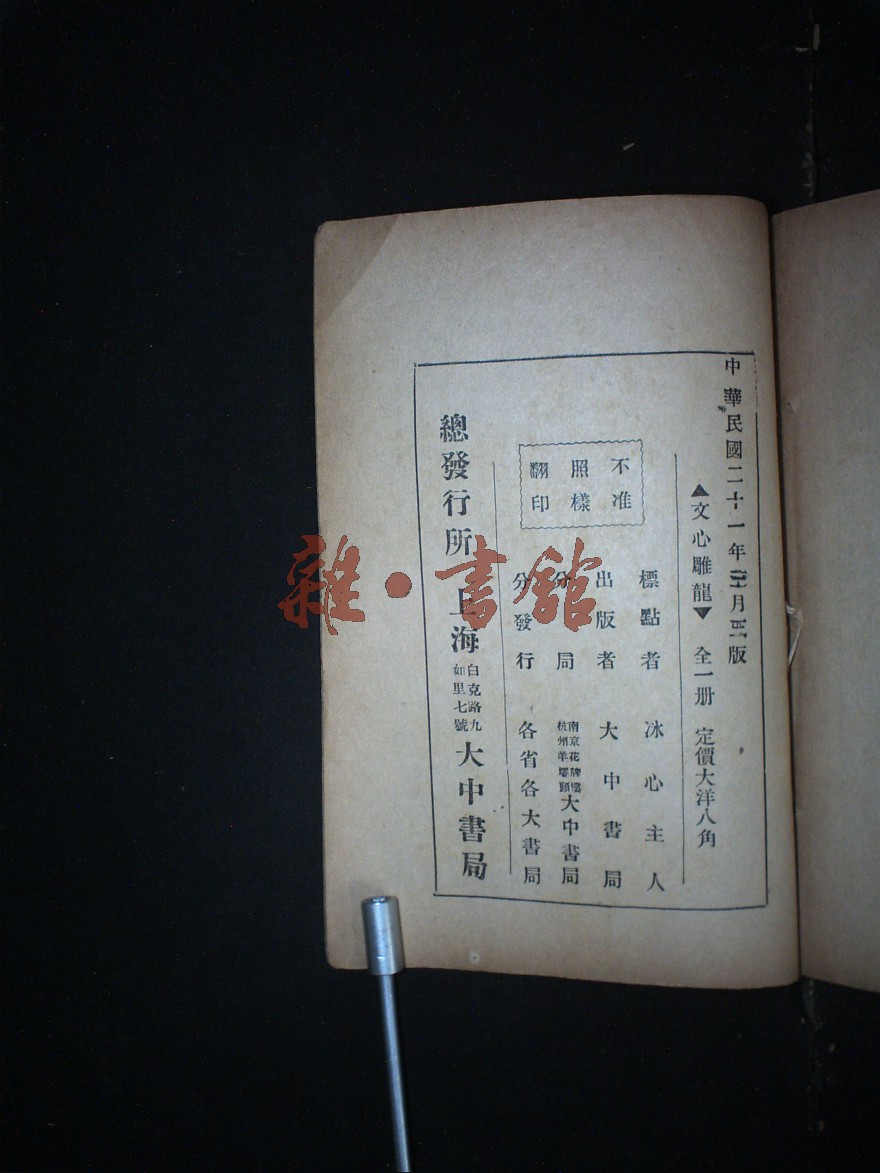 中華民國二十一年 月 版
▲文心雕龍▼ 全一册 定價大洋八角
不准
照樣
翻印
標點者 冰心主人
出版者 大中書局
分局 南京花牌樓 杭州羊壩頭 大中書局
分發行 各省各大書局
總發行所 上海 白克路九如里七號 大中書局
雜·書館